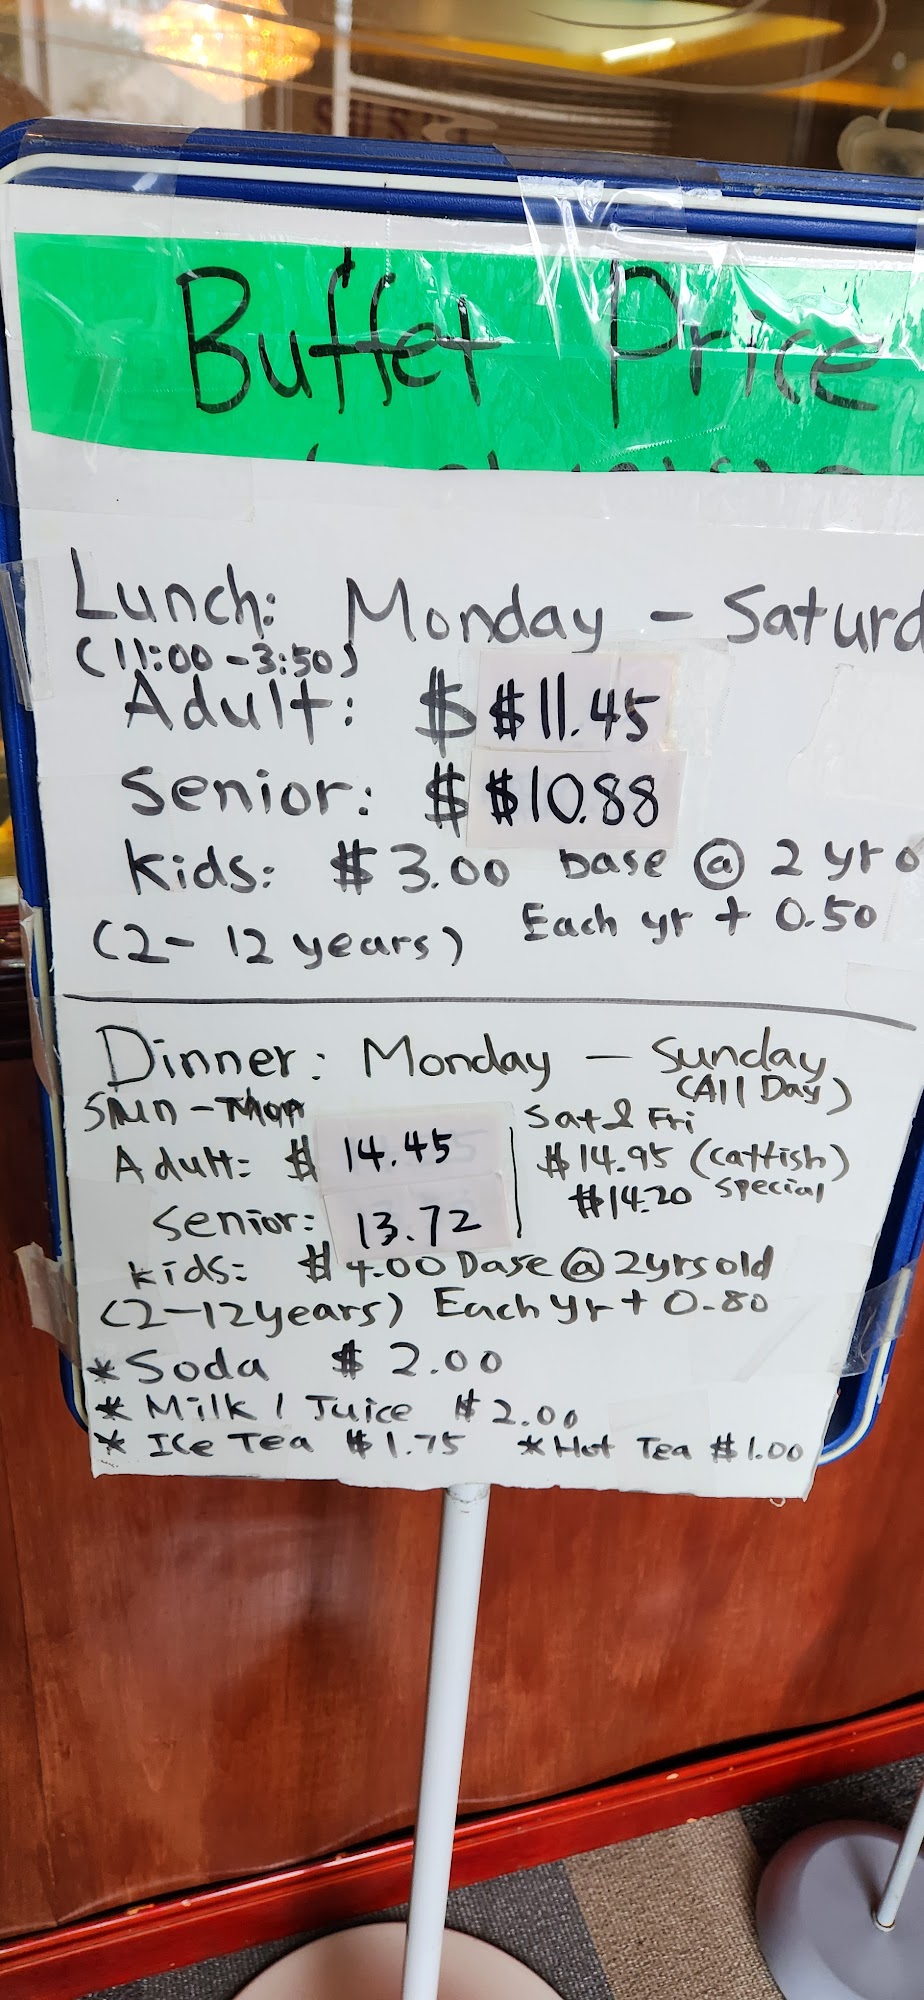 Buffet Price
Lunch: Monday - Saturd
(11:00-3:50)
Adult: $ $11.45
Senior: $ $10.88
Kids: $3.00 base @ 2 yr o
(2-12 years) Each yr + 0.50
Dinner: Monday - Sunday
(All Day)
Sun - Mon Sat & Fri
Adult: $ 14.45 $14.95 (catfish)
$14.20 special
Senior: 13.72
Kids: $4.00 Base @ 2yrs old
(2-12years) Each yr + 0.80
*Soda $2.00
* Milk / Juice $2.00
* Ice Tea $1.75 *Hot Tea $1.00